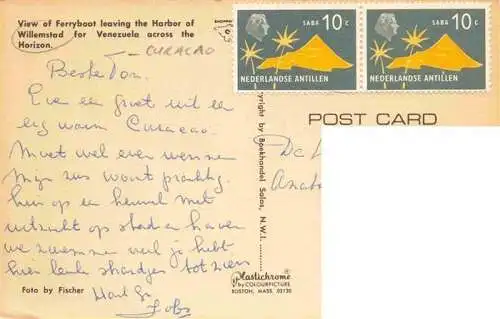 View of Ferryboot leaving the Harbor of
Willemstad for Venezuela across the
Horizon.
- CURAÇAO
Beste Ton.
Even een groet uit een
erg warm Curacao.
Moet wel even wennen
Mijn zus woont prachtig
huis op een heuvel met
uitzicht op stad en haven
we zwemmen veel je hebt
hier leuke strandjes tot ziens
Foto by Fischer
SABA 10 c
NEDERLANDSE ANTILLEN
SABA 10 c
NEDERLANDSE ANTILLEN
POST CARD
Copyright by Boekhandel Salas, N.W.I.
Plastichrome®
by COLOURPICTURE
BOSTON, MASS. 02130